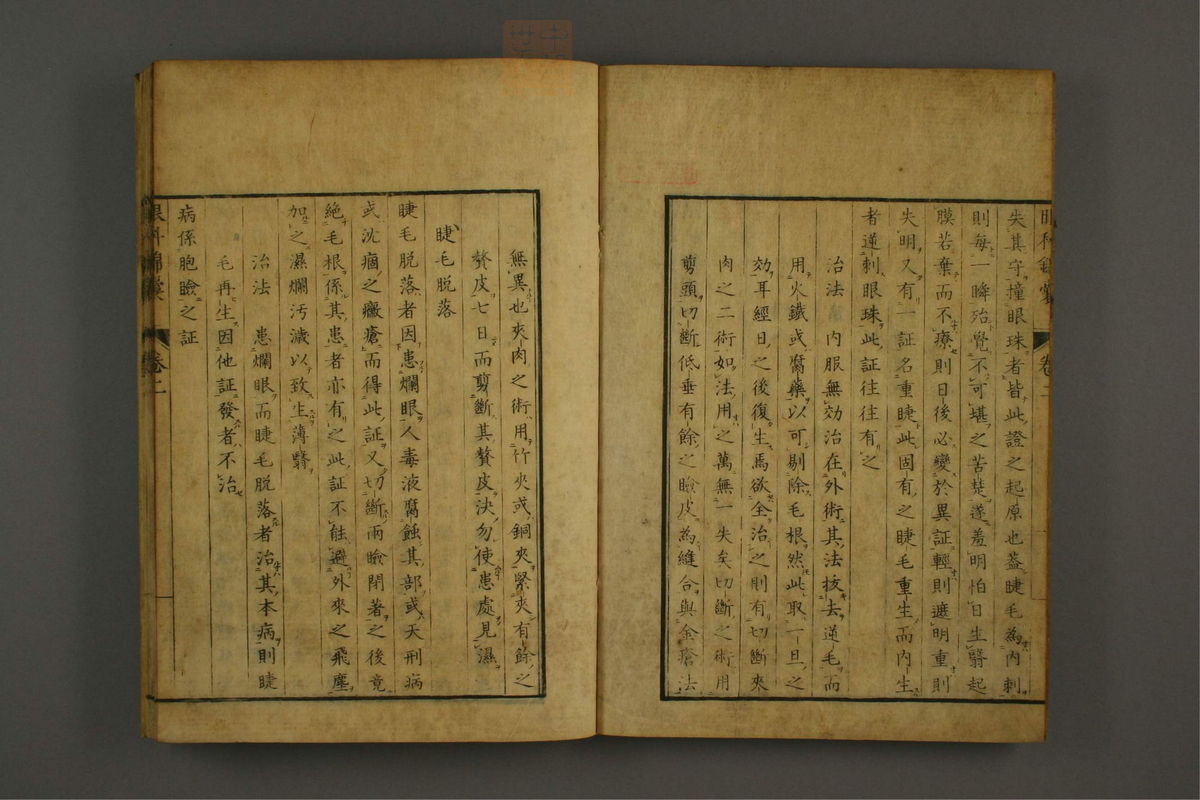 眼科錦囊 卷二
失其守撞眼珠者皆此證之起原也蓋睫毛為內刺
則每一瞬殆覺不可堪之苦楚遂羞明怕日生翳起
膜若棄而不療則日後必變於異証輕則遮明重則
失明又有一証名重睫此固有之睫毛重生而內生
者逆刺眼珠此証往往有之
治法 內服無効治在外術其法拔去逆毛而
用火鐵或腐藥以可剔除毛根然此取一旦之
効耳經日之後復生焉欲全治之則有切斷夾
肉之二術如法用之萬無一失矣切斷之術用
剪頭切斷低垂有餘之瞼皮為縫合與金瘡法
無異也夾肉之術用竹夾或銅夾緊夾有餘之
贅皮七日而剪斷其贅皮決勿使患處見濕
睫毛脫落
睫毛脫落者因患爛眼人毒液腐蝕其部或天刑病
或沈痼之黴瘡而得此証又切斷兩瞼閉著之後竟
絕毛根係其患者亦有之此証不能避外來之飛塵
加之濕爛汚濊以致生薄翳
治法 患爛眼而睫毛脫落者治其本病則睫
毛再生因他証發者不治
病係胞瞼之証
眼科錦囊 卷二